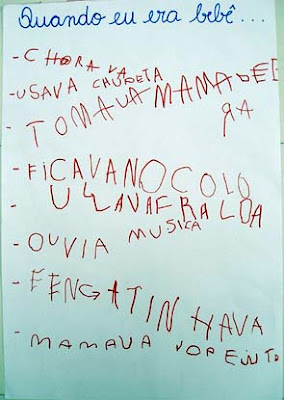 Quando eu era bebê...
- CHORAVA
-USAVA CHUPETA
- TOMAVA MAMADEE
RA
- FICAVANOCOLO
- LAVAFRALDA
- OUVIA MUSICA
- EENGATINHAVA
- MAMAVA